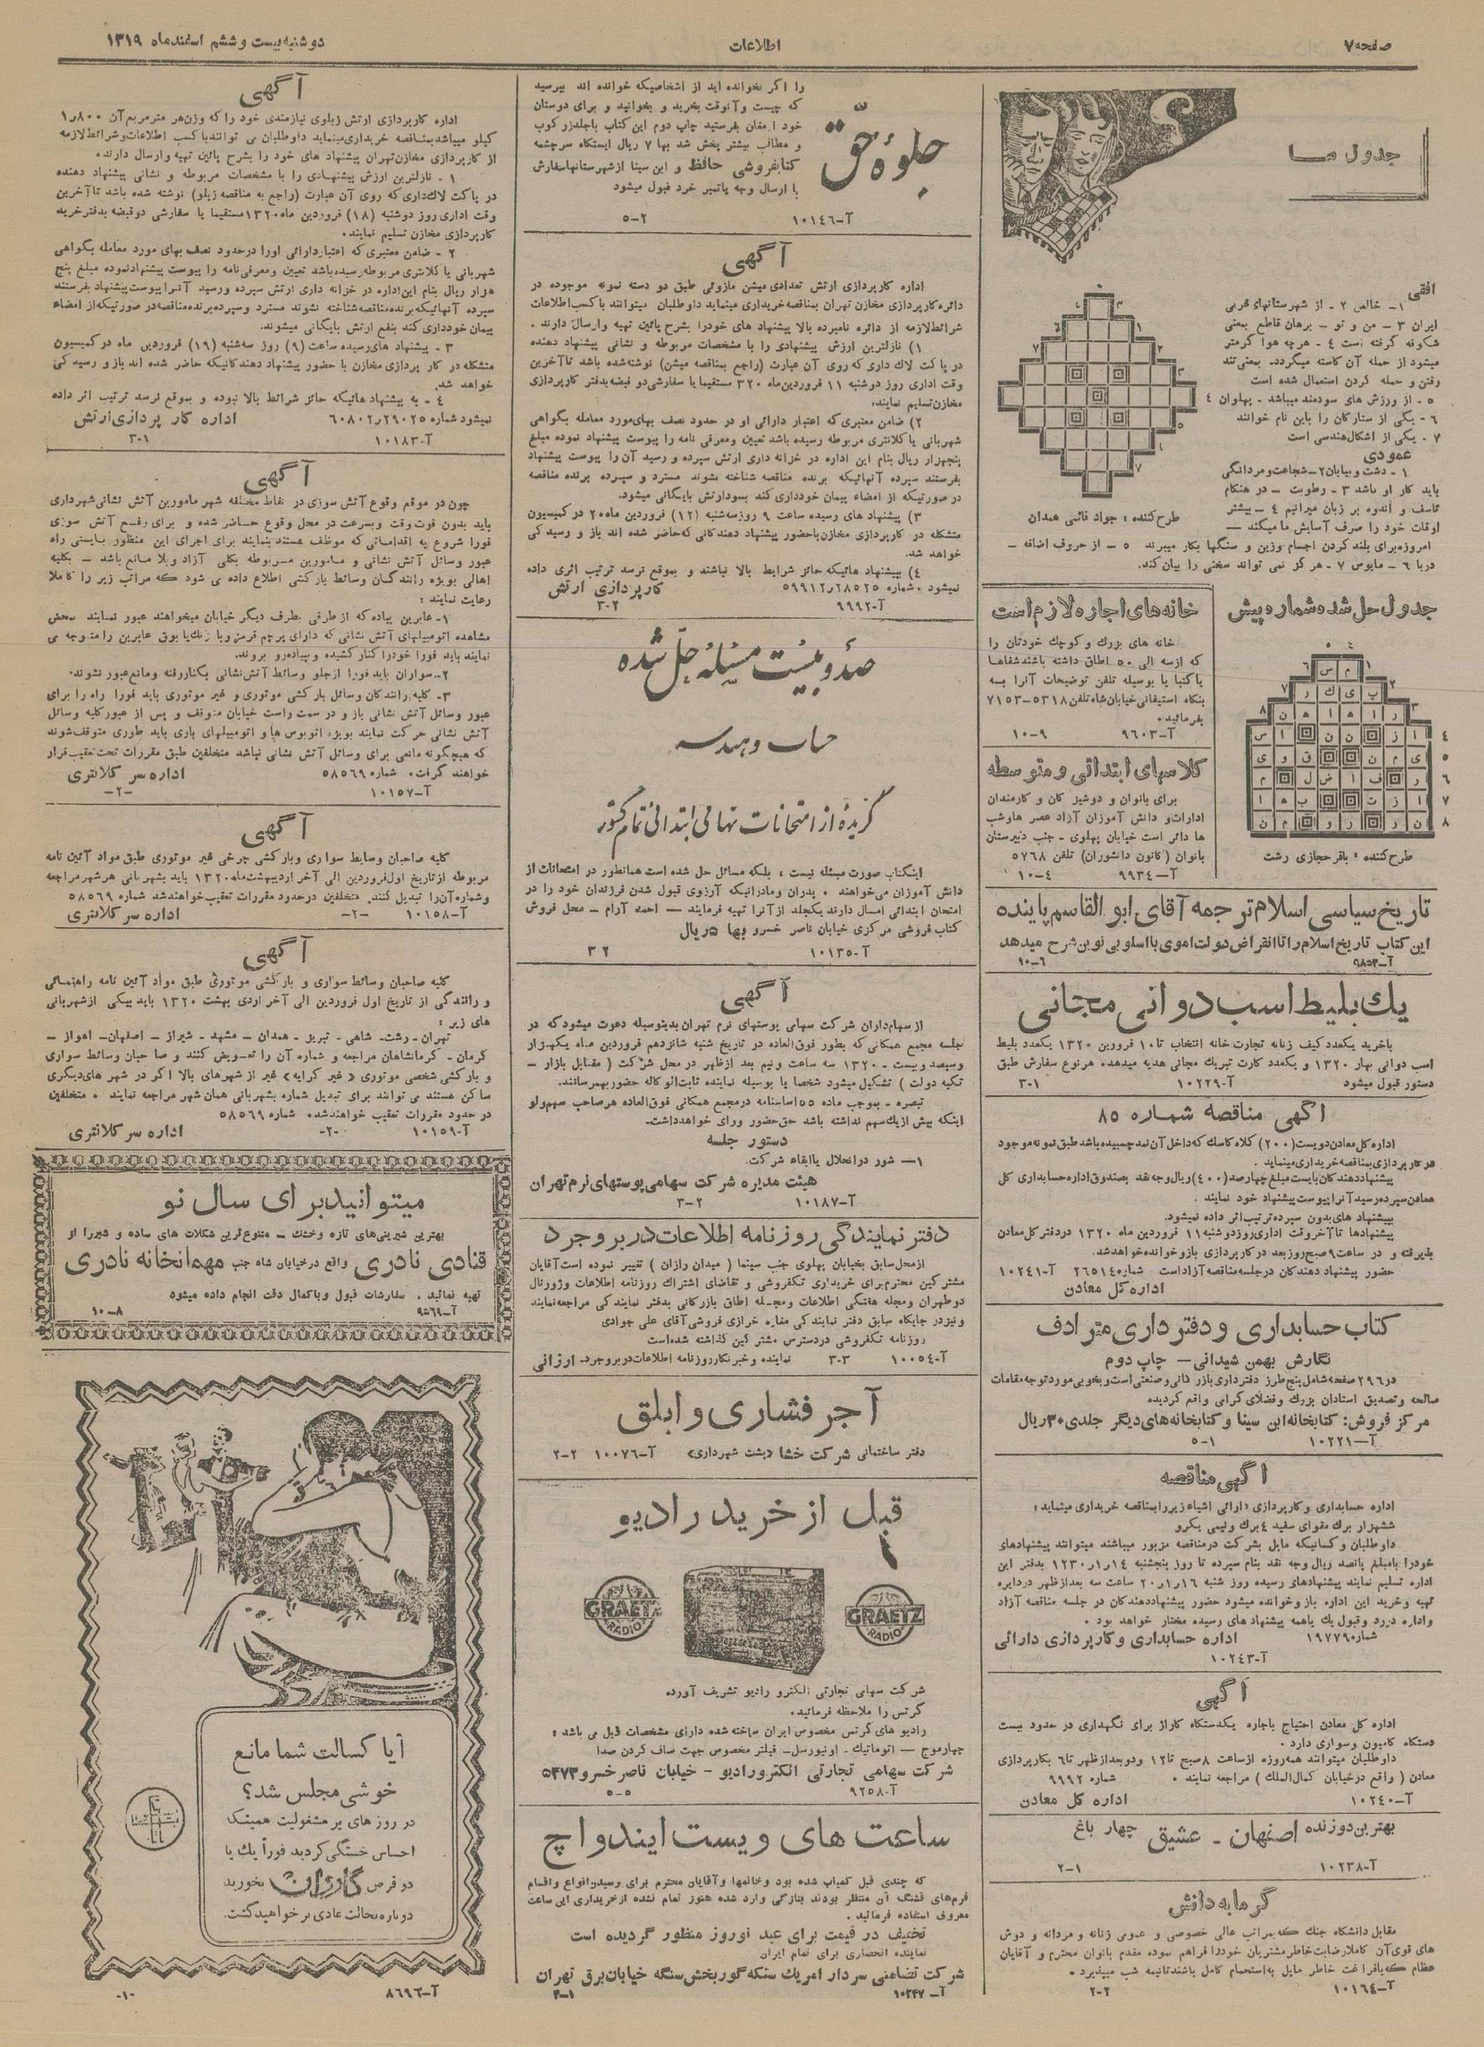 صفحه ۷
اطلاعات
دوشنبه بیست و ششم اسفند ماه ۱۳۱۹
جدول ما
افقی
۱- خالص ۲ - از شهرستانهای غربی
ایران ۳ - من و تو - برهان قاطع بمعنی
شکوفه گرفته است ۴ - هرچه هوا گرمتر
میشود از حمله آن کاسته میگردد. بمعنی تند
رفتن و حمله کردن استعمال شده است
۵ - از ورزش های سودمند میباشد - پهلوان
۶ - یکی از ستارگان را باین نام خوانند
۷ - یکی از اشکال هندسی است
عمودی
۱ - دشت و بیابان ۲ - شجاعت و مردانگی
باید کار او باشد ۳ - رطوبت - در هنگام
تاسف و اندوه بر زبان میرانیم ۴ - بیشتر
اوقات خود را صرف آسایش ما میکند -
امروزه برای بلند کردن اجسام وزین و سنگها بکار میبرند ۵ - از حروف اضافه -
دریا ۶ - مایوس ۷ - هرگز نمی تواند سخنی را بیان کند.
طرح کننده : جواد قائمی همدان
جدول حل شده شماره پیش
طرح کننده : باقر حجازی رشت
خانه های اجاره لازم است
خانه های بزرك و کوچك خودتان را
که از سه الی ۵۰ اطاق داشته باشند شفاها
یا کتبا یا بوسیله تلفن توضیحات آنرا به
بنگاه استیفائی خیابان شاه تلفن ۵۳۱۸-۷۱۵۳
بفرمائید.
آ-۹۶۰۳ ۹-۱۰
کلاسهای ابتدائی و متوسطه
برای بانوان و دوشیزگان و کارمندان
ادارات و دانش آموزان آزاد عصرها و شب
ها دائر است خیابان پهلوی - جنب دبیرستان
بانوان (کانون دانشوران) تلفن ۵۷۶۸
آ-۹۹۳۴ ۴-۱۰
تاریخ سیاسی اسلام ترجمه آقای ابوالقاسم پاینده
این کتاب تاریخ اسلام را تا انقراض دولت اموی با اسلوبی نوین شرح میدهد
آ-۹۸۵۳ ۶-۱۰
یك بلیط اسب دوانی مجانی
با خرید یکعدد کیف زنانه تجارت خانه انتخاب تا ۱۰ فرورین ۱۳۲۰ یکعدد بلیط
اسب دوانی بهار ۱۳۲۰ و یکعدد کارت تبریك مجانی هدیه میدهد. هر نوع سفارش طبق
دستور قبول میشود آ-۱۰۲۲۹ ۱-۳
آگهی مناقصه شماره ۸۵
اداره کل معادن دویست (۲۰۰) کلاه کاسك که داخل آن نمد چسبیده باشد طبق نمونه موجود
در کارپردازی بمناقصه خریداری مینماید.
پیشنهاد دهندگان بایست مبلغ چهارصد (۴۰۰) ریال وجه نقد بصندوق اداره حسابداری کل
معادن سپرده رسید آنرا پیوست پیشنهاد خود نمایند.
پیشنهاد های بدون سپرده ترتیب اثر داده نمیشود.
پیشنهادها تا آخر وقت اداری روز دوشنبه ۱۱ فروردین ماه ۱۳۲۰ در دفتر کل معادن
پذیرفته و در ساعت ۹ صبح روز بعد در کارپردازی باز و خوانده خواهد شد.
حضور پیشنهاد دهندگان در جلسه مناقصه آزاد است شماره ۲۶۵۱۴ آ-۱۰۲۴۱
اداره کل معادن
کتاب حسابداری و دفترداری مترادف
نگارش بهمن شیدانی - چاپ دوم
در ۲۹۶ صفحه شامل پنج طرز دفترداری بازرگانی و صنعتی است و بخوبی مورد توجه مقامات
صالحه و تصدیق استادان بزرك و فضلای گرامی واقع گردیده
مرکز فروش: کتابخانه ابن سینا و کتابخانه های دیگر جلدی ۳۰ ریال
آ-۱۰۲۲۱ ۱-۵
آگهی مناقصه
اداره حسابداری و کارپردازی دارائی اشیاء زیر را بمناقصه خریداری مینماید:
ششهزار برك مقوای سفید ۴ برك و نیمی یکرو
داوطلبان و کسانیکه مایل بشرکت در مناقصه مزبور میباشند میتوانند پیشنهادهای
خود را بامبلغ پانصد ریال وجه نقد بنام سپرده تا روز پنجشنبه ۱۴ ر۱ ر۱۲۳۰ بدفتر این
اداره تسلیم نمایند پیشنهادهای رسیده روز شنبه ۱۶ر۱ر۲۰ ساعت سه بعد از ظهر در دایره
تهیه و خرید این اداره باز و خوانده میشود حضور پیشنهاد دهندگان در جلسه مناقصه آزاد
و اداره در رد و قبول یك یا همه پیشنهاد های رسیده مختار خواهد بود.
شماره ۱۹۷۷۹۰ اداره حسابداری و کارپردازی دارائی
آ-۱۰۲۴۳
آگهی
اداره کل معادن احتیاج باجاره یکدستگاه گاراژ برای نگهداری در حدود بیست
دستگاه کامیون و سواری دارد.
داوطلبان میتوانند همه روزه از ساعت ۸ صبح تا ۱۲ و دو بعد از ظهر تا ۶ بکارپردازی
معادن (واقع در خیابان کمال الملك) مراجعه نمایند. شماره ۹۹۹۲
آ-۱۰۲۴۰ اداره کل معادن
بهترین دوزنده اصفهان - عشیق چهار باغ
آ-۱۰۲۳۸ ۱-۲
گرمابه دانش
مقابل دانشگاه جنك که بمراتب عالی خصوصی و عمومی زنانه و مردانه و دوش
های قوی آن کاملا رضایت خاطر مشتریان خود را فراهم نموده مقدم بانوان محترم و آقایان
عظام که بافراغت خاطر مایل به استحمام کامل باشند تا نیمه شب میپذیرد.
آ-۱۰۱۶۴ ۲-۲
جلوه حق
را اگر نخوانده اید از اشخاصیکه خوانده اند بپرسید
که چیست و آنوقت بخرید و بخوانید و برای دوستان
خود ارمغان بفرستید چاپ دوم این کتاب با جلد زرکوب
و مطالب بیشتر پخش شد بها ۷ ریال ایستگاه سرچشمه
کتابفروشی حافظ و ابن سینا از شهرستانها سفارش
با ارسال وجه یا تمبر خرد قبول میشود
آ-۱۰۱۴۶ ۲-۵
آگهی
اداره کارپردازی ارتش تعدادی میشن ماروئی طبق دو دسته نمونه موجوده در
دائره کارپردازی مخازن تهران بمناقصه خریداری مینماید داوطلبان میتوانند با کسب اطلاعات
شرائط لازمه از دائره نامبرده بالا پیشنهاد های خود را بشرح پائین تهیه و ارسال دارند.
۱) نازلترین ارزش پیشنهادی را با مشخصات مربوطه و نشانی پیشنهاد دهنده
در پاکت لاك داری که روی آن عبارت (راجع بمناقصه میشن) نوشته شده باشد تا آخرین
وقت اداری روز دوشنبه ۱۱ فروردین ماه ۳۲۰ مستقیما یا سفارشی دو قبضه بدفتر کارپردازی
مخازن تسلیم نمایند.
۲) ضامن معتبری که اعتبار دارائی او در حدود نصف بهای مورد معامله بگواهی
شهربانی یا کلانتری مربوطه رسیده باشد تعیین و معرفی نامه را پیوست پیشنهاد نموده مبلغ
پنجهزار ریال بنام این اداره در خزانه داری ارتش سپرده و رسید آن را پیوست پیشنهاد
بفرستند سپرده آنهائیکه برنده مناقصه شناخته نشوند مسترد و سپرده برنده مناقصه
در صورتیکه از امضاء پیمان خودداری کند بسود ارتش بایگانی میشود.
۳) پیشنهاد های رسیده ساعت ۹ روز سه شنبه (۱۲) فروردین ماه ۲۰ در کمیسیون
متشکله در کارپردازی مخازن باحضور پیشنهاد دهندگانی که حاضر شده اند باز و رسیدگی
خواهد شد.
۴) بپیشنهاد هائیکه حائز شرایط بالا نباشند و بموقع نرسد ترتیب اثری داده
نمیشود. شماره ۲۸۵۲۵ر۵۹۹۱۲ کارپردازی ارتش
آ-۹۹۹۲ ۲-۳
صد و بیست مسئله حل شده
حساب و هندسه
گزیده از امتحانات نهائی ابتدائی تمام کشور
اینکتاب صورت مسئله نیست، بلکه مسائل حل شده است همانطور در امتحانات از
دانش آموزان می خواهند. پدران و مادرانیکه آرزوی قبول شدن فرزندان خود را در
امتحان ابتدائی امسال دارند یکجلد از آنرا تهیه فرمایند - احمد آرام - محل فروش
کتاب فروشی مرکزی خیابان ناصر خسرو بها ۵ ریال
آ-۱۰۱۳۵ ۲ ۳
آگهی
از سهام داران شرکت سهامی پوستهای نرم تهران بدینوسیله دعوت میشود که در
جلسه مجمع همگانی که بطور فوق العاده در تاریخ شنبه شانزدهم فروردین ماه یکهزار
و سیصد و بیست - ۱۳۲۰ سه ساعت و نیم بعد از ظهر در محل شرکت (مقابل بازار -
تکیه دولت) تشکیل میشود شخصا یا بوسیله نماینده ثابت الوکاله حضور بهمرسانند.
تبصره - بموجب ماده ۵۵ اساسنامه در مجمع همگانی فوق العاده هر صاحب سهم ولو
اینکه بیش از یك سهم نداشته باشد حق حضور و رای خواهد داشت.
دستور جلسه
۱- شور در انحلال یا ابقاء شرکت.
هیئت مدیره شرکت سهامی پوستهای نرم تهران
آ-۱۰۱۸۷ ۲-۳
دفتر نمایندگی روزنامه اطلاعات در بروجرد
از محل سابق بخیابان پهلوی جنب سینما (میدان رازان) تغییر نموده است آقایان
مشترکین محترم برای خریداری تکفروشی و تقاضای اشتراك روزنامه اطلاعات و ژورنال
دو طهران و مجله هفتگی اطلاعات و مجله اطاق بازرگانی بدفتر نمایندگی مراجعه نمایند
و نیز در جایگاه سابق دفتر نمایندگی مغازه خرازی فروشی آقای علی جوادی
روزنامه تکفروشی در دسترس مشترکین گذاشته شده است
آ-۱۰۰۵۴ ۳-۳ نماینده و خبرنگار روزنامه اطلاعات در بروجرد - ارزانی
آجر فشاری و ابلق
دفتر ساختمانی شرکت خشا «پشت شهرداری» آ-۱۰۰۷۶ ۲-۲
قبل از خرید رادیو
GRAETZ
RADIO
GRAETZ
RADIO
شرکت سهامی تجارتی الکترو رادیو تشریف آورده
گرتس را ملاحظه فرمائید.
رادیو های گرتس مخصوص ایران ساخته شده دارای مشخصات ذیل می باشد:
چهار موج - اتوماتیك. اونیورسل- فیلتر مخصوص جهت صاف کردن صدا
شرکت سهامی تجارتی الکترورادیو - خیابان ناصر خسرو ۵۴۷۳
آ-۹۲۵۸ ۵-۵
ساعت های ویست ایند واچ
که چندی قبل کمیاب شده بود و خانمها و آقایان محترم برای رسیدن انواع و اقسام
فرمهای قشنگ آن منتظر بودند بتازگی وارد شده هنوز تمام نشده از خریداری این ساعت
معروف استفاده فرمائید.
تخفیف در قیمت برای عید نوروز منظور گردیده است
نماینده انحصاری برای تمام ایران
شرکت تضامنی سردار امریك سنگه گوربخش سنگه خیابان برق تهران
آ-۱۰۲۴۷ ۱-۴
آگهی
اداره کارپردازی ارتش زیلوی نیازمندی خود را که وزن هر متر مربع آن ۱٫۸۰۰
کیلو میباشد بمناقصه خریداری مینماید داوطلبان می توانند با کسب اطلاعات و شرائط لازمه
از کارپردازی مخازن تهران پیشنهاد های خود را بشرح پائین تهیه و ارسال دارند.
۱ - نازلترین ارزش پیشنهادی را با مشخصات مربوطه و نشانی پیشنهاد دهنده
در پاکت لاك داری که روی آن عبارت (راجع به مناقصه زیلو) نوشته شده باشد تا آخرین
وقت اداری روز دوشنبه (۱۸) فروردین ماه ۱۳۲۰ مستقیما یا سفارشی دو قبضه بدفتر خرید
کارپردازی مخازن تسلیم نمایند.
۲ - ضامن معتبری که اعتبار دارائی او را در حدود نصف بهای مورد معامله بگواهی
شهربانی یا کلانتری مربوطه رسیده باشد تعیین و معرفی نامه را پیوست پیشنهاد نموده مبلغ پنج
هزار ریال بنام این اداره در خزانه داری ارتش سپرده و رسید آنرا پیوست پیشنهاد بفرستند
سپرده آنهائیکه برنده مناقصه شناخته نشوند مسترد و سپرده برنده مناقصه در صورتیکه از امضاء
پیمان خودداری کند بنفع ارتش بایگانی میشود.
۳ - پیشنهاد های رسیده ساعت (۹) روز سه شنبه (۱۹) فروردین ماه در کمیسیون
متشکله در کار پردازی مخازن با حضور پیشنهاد دهندگانیکه حاضر شده اند باز و رسیدگی
خواهد شد.
۴ - به پیشنهاد هائیکه حائز شرائط بالا نبوده و بموقع نرسد ترتیب اثر داده
نمیشود شماره ۲۹۰۲۵ر۶۰۸۰۲ اداره کار پردازی ارتش
آ-۱۰۱۸۳ ۱-۳
آگهی
چون در موقع وقوع آتش سوزی در نقاط مختلفه شهر مامورین آتش نشانی شهرداری
باید بدون فوت وقت و بسرعت در محل وقوع حاضر شده و برای رفع آتش سوزی
فورا شروع به اقداماتی که موظف هستند بنمایند برای اجرای این منظور بایستی راه
عبور وسائل آتش نشانی و مامورین مربوطه بکلی آزاد و بلا مانع باشد - بکلیه
اهالی بویژه رانندگان وسائط بارکشی اطلاع داده می شود که مراتب زیر را کاملا
رعایت نمایند:
۱- عابرین پیاده که از طرفی بطرف دیگر خیابان میخواهند عبور نمایند بمحض
مشاهده اتومبیلهای آتش نشانی که دارای پرچم قرمز و یا زنك یا بوق عابرین را متوجه می
نمایند باید فورا خود را کنار کشیده و پیاده رو بروند.
۲- سواران باید فورا از جلو وسائط آتش نشانی بکنار رفته و مانع عبور نشوند.
۳ - کلیه رانندگان وسائل بارکشی موتوری و غیر موتوری باید فورا راه را برای
عبور وسائل آتش نشانی باز و در سمت راست خیابان متوقف و پس از عبور کلیه وسائل
آتش نشانی حرکت نمایند بویژه اتوبوس ها و اتومبیلهای باری باید طوری متوقف شوند
که هیچگونه مانعی برای وسائل آتش نشانی نباشد متخلفین طبق مقررات تحت تعقیب قرار
خواهند گرفت. شماره ۵۸۵۶۹ اداره سر کلانتری
آ-۱۰۱۵۷ -۲-
آگهی
کلیه صاحبان وسایط سواری و بارکشی چرخی غیر موتوری طبق مواد آئین نامه
مربوطه از تاریخ اول فروردین الی آخر اردیبهشت ماه ۱۳۲۰ باید بشهربانی هر شهر مراجعه
و شماره آن را تبدیل کنند. متخلفین در حدود مقررات تعقیب خواهند شد شماره ۵۸۵۶۹
آ-۱۰۱۵۸ -۲- اداره سر کلانتری
آگهی
کلیه صاحبان وسائط سواری و بارکشی موتوری طبق مواد آئین نامه راهنمائی
و رانندگی از تاریخ اول فروردین الی آخر اردی بهشت ۱۳۲۰ باید بیکی از شهربانی
های زیر:
تهران - رشت- شاهی - تبریز - همدان - مشهد - شیراز - اصفهان- اهواز -
کرمان - کرمانشاهان مراجعه و شماره آن را تعویض کنند و صاحبان وسائط سواری
و بارکشی شخصی موتوری «غیر کرایه» غیر از شهرهای بالا اگر در شهر های دیگری
ساکن هستند می توانند برای تبدیل شماره بشهربانی همان شهر مراجعه نمایند. متخلفین
در حدود مقررات تعقیب خواهند شد. شماره ۵۸۵۶۹
آ-۱۰۱۵۹ -۲- اداره سر کلانتری
میتوانید برای سال نو
بهترین شیرینی های تازه و خشك - متنوع ترین شکلات های ساده و شیررا از
قنادی نادری واقع در خیابان شاه جنب مهمانخانه نادری
تهیه نمائید. سفارشات قبول و باکمال دقت انجام داده میشود
آ-۹۵۶۹ ۸-۱۰
آیا کسالت شما مانع
خوشی مجلس شد؟
در روز های پر مشغولیت همینکه
احساس خستگی کردید فوراً یك یا
دو قرص گاردان بخورید
دوباره بحالت عادی بر خواهید گشت.
آ-۸۶۹۲ -۱۰-